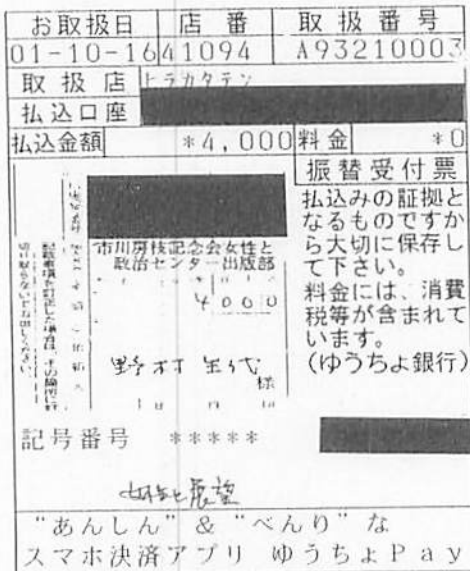 お取扱日 店番 取扱番号
01-10-16 41094 A93210003
取扱店 ヒラカタテン
払込口座
払込金額 *4,000 料金 *0
振替受付票
払込みの証拠と
なるものですか
ら大切に保存し
て下さい。
料金には、消費
税等が含まれて
います。
(ゆうちょ銀行)
市川房枝記念会女性と
政治センター出版部
4000
野村
様
記載事項を訂正した場合は、その箇所に訂
切り取らないでお出しください。
記号番号 *****
女性と展望
“あんしん”&“べんり”な
スマホ決済アプリ ゆうちょPay